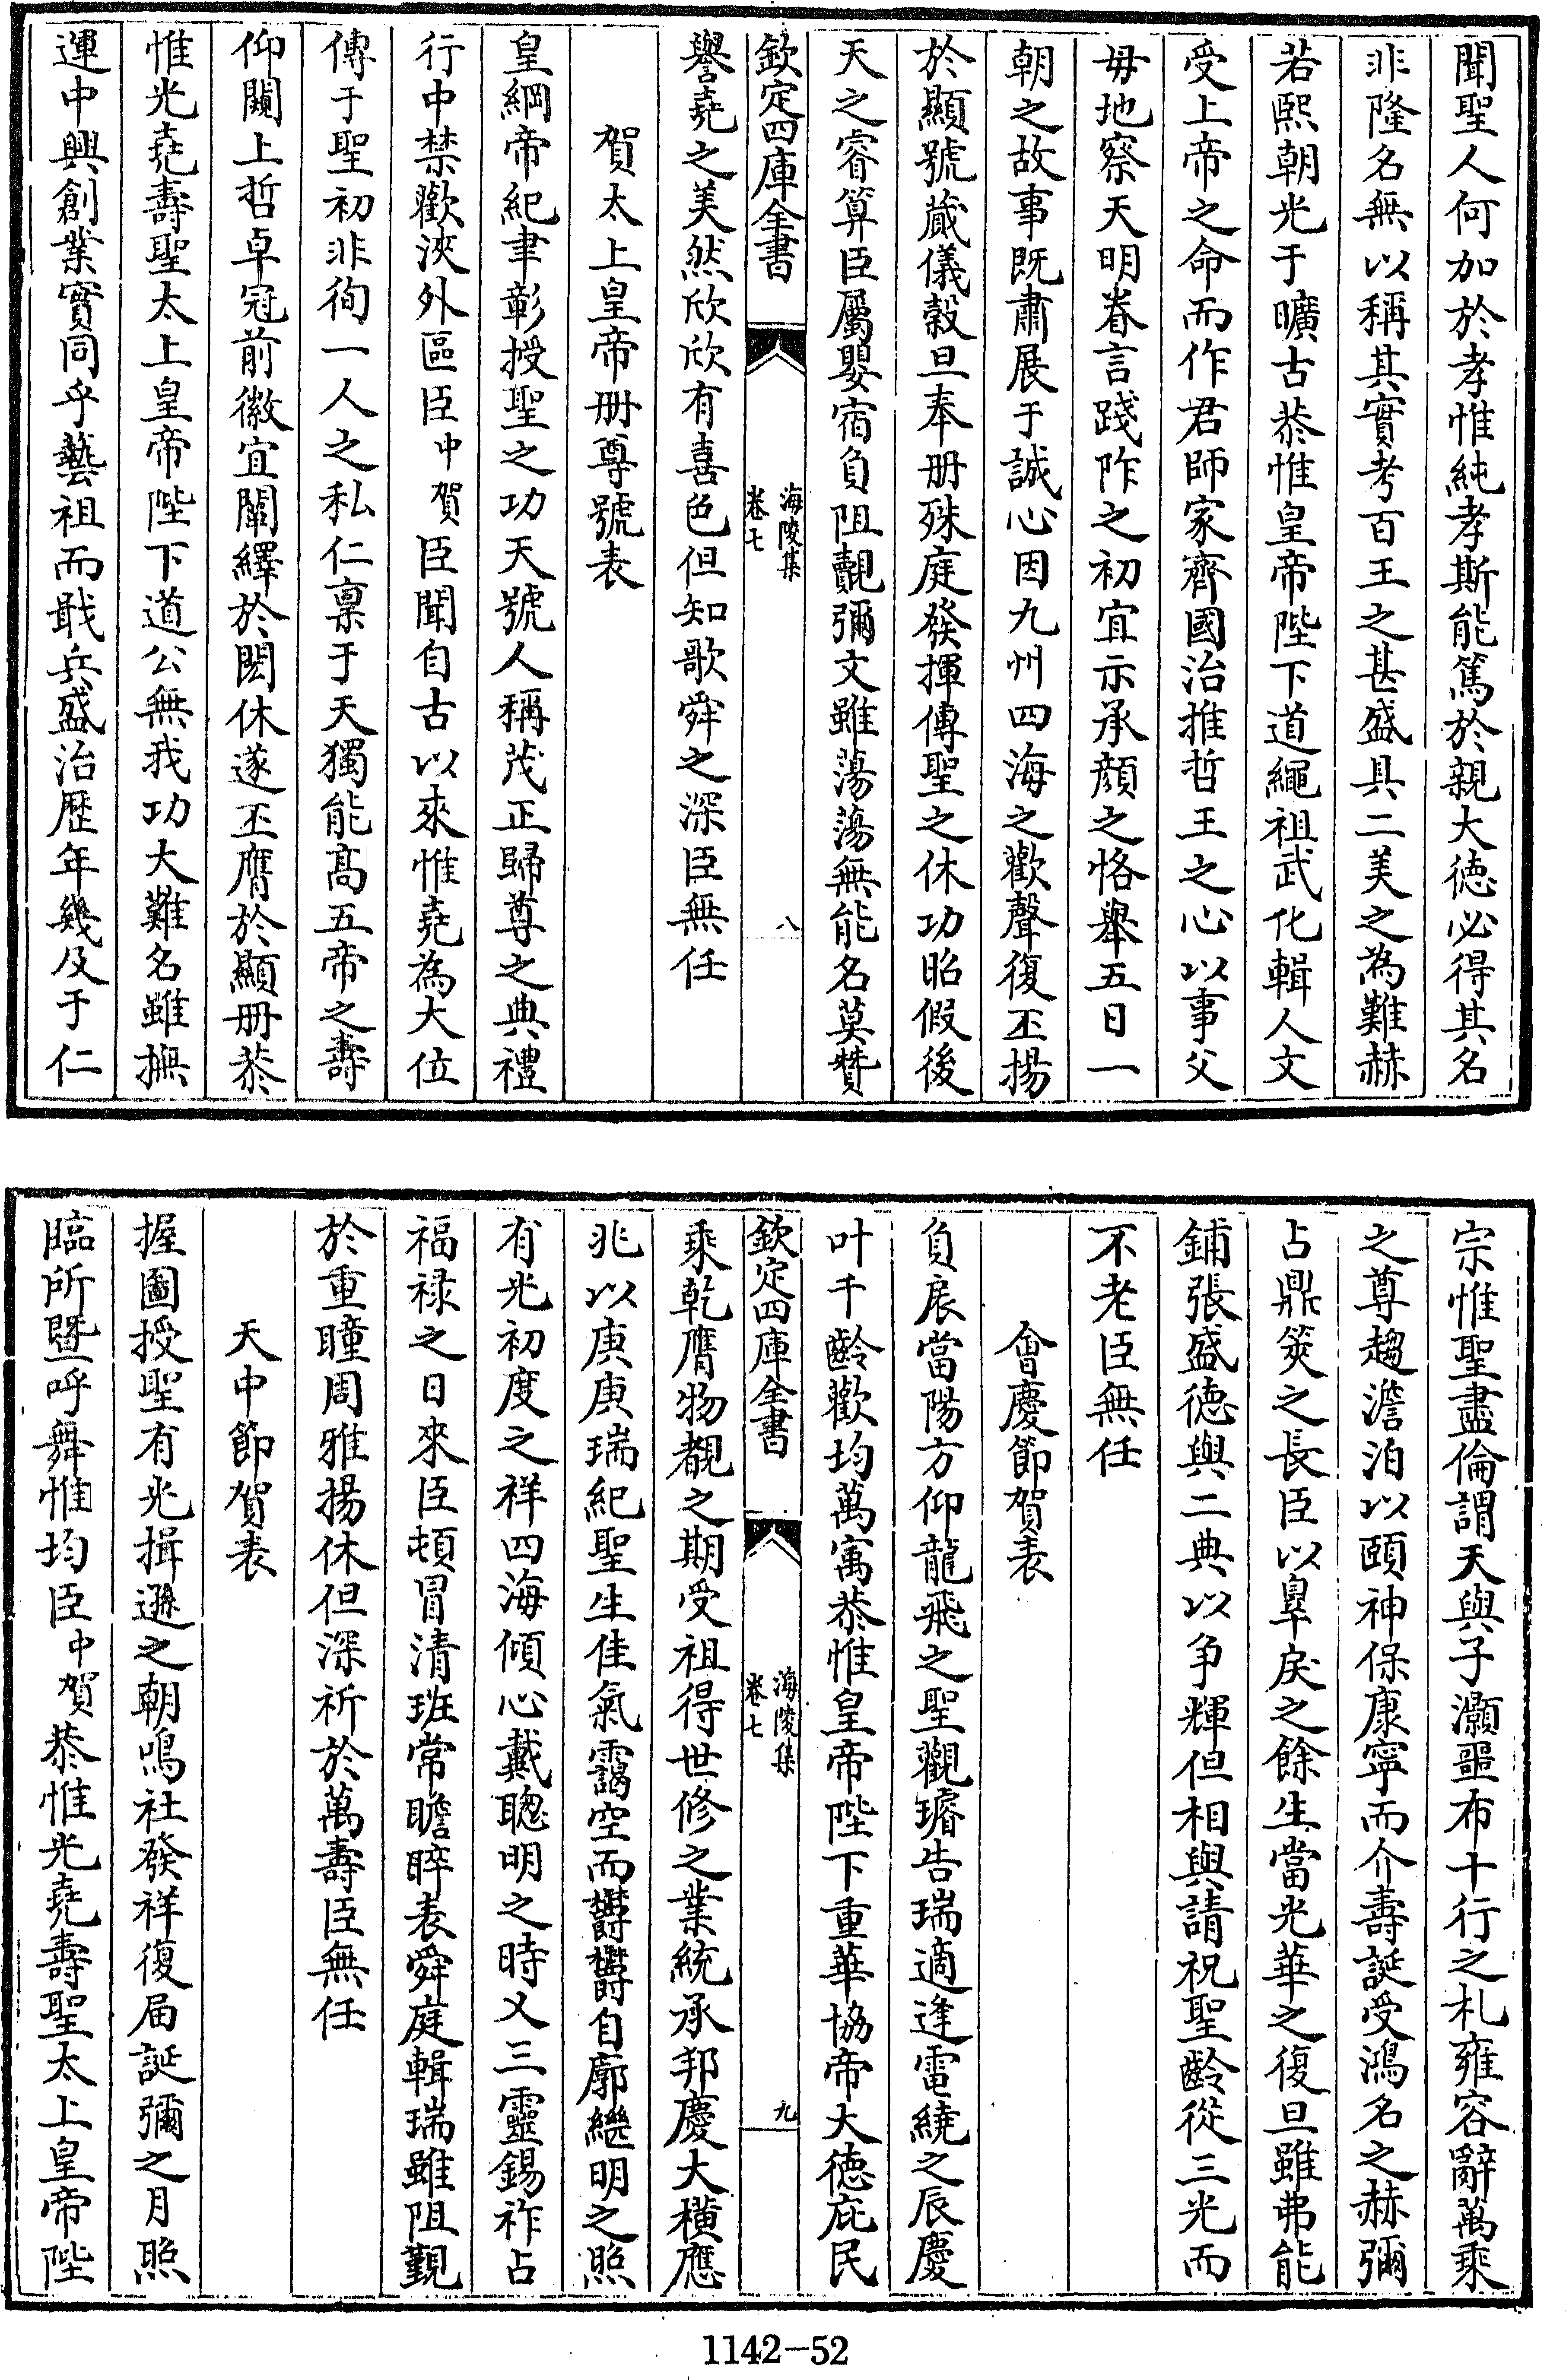 聞聖人何加於孝惟純孝斯能篤於親大徳必得其名
非隆名無以稱其實考百王之甚盛具二美之為難赫
若熙朝光于曠古恭惟皇帝陛下道繩祖武化輯人文
受上帝之命而作君師家齊國治推哲王之心以事父
母地察天明眷言踐阼之初宜示承顔之恪舉五日一
朝之故事既肅展于誠心因九州四海之歡聲復丕揚
於顯號蕆儀榖旦奉册殊庭發揮傳聖之休功昭假後
天之睿算臣屬嬰宿負阻覿彌文雖蕩蕩無能名莫贊
欽定四庫全書
海陵集
卷七
八
譽堯之美然欣欣有喜色但知歌舜之深臣無任
賀太上皇帝册尊號表
皇綱帝紀聿彰授聖之功天號人稱茂正歸尊之典禮
行中禁歡浹外區臣中賀臣聞自古以來惟堯為大位
傳于聖初非徇一人之私仁稟于天獨能高五帝之壽
仰闚上哲卓冠前徽宜闡繹於閎休遂丕膺於顯册恭
惟光堯壽聖太上皇帝陛下道公無我功大難名雖撫
運中興創業實同乎藝祖而戢兵盛治歴年幾及于仁
宗惟聖盡倫謂天與子灝噩布十行之札雍容辭萬乘
之尊趨澹泊以頤神保康寧而介壽誕受鴻名之赫彌
占鼎筴之長臣以辠戾之餘生當光華之復旦雖弗能
鋪張盛徳與二典以争輝但相與請祝聖齡從三光而
不老臣無任
會慶節賀表
負扆當陽方仰龍飛之聖觀璿告瑞適逢電繞之辰慶
叶千齡歡均萬寓恭惟皇帝陛下重華協帝大徳庇民
欽定四庫全書
海陵集
卷七
九
乘乾膺物覩之期受祖得世修之業統承邦慶大横應
兆以庚庚瑞紀聖生佳氣靄空而欝欝自廓繼明之照
有光初度之祥四海傾心戴聰明之時乂三靈錫祚占
福祿之日來臣頓冒清班常瞻睟表舜庭輯瑞雖阻覲
於重瞳周雅揚休但深祈於萬壽臣無任
天中節賀表
握圖授聖有光揖遜之朝鳴社發祥復届誕彌之月照
臨所暨呼舞惟均臣中賀恭惟光堯壽聖太上皇帝陛
1142-52